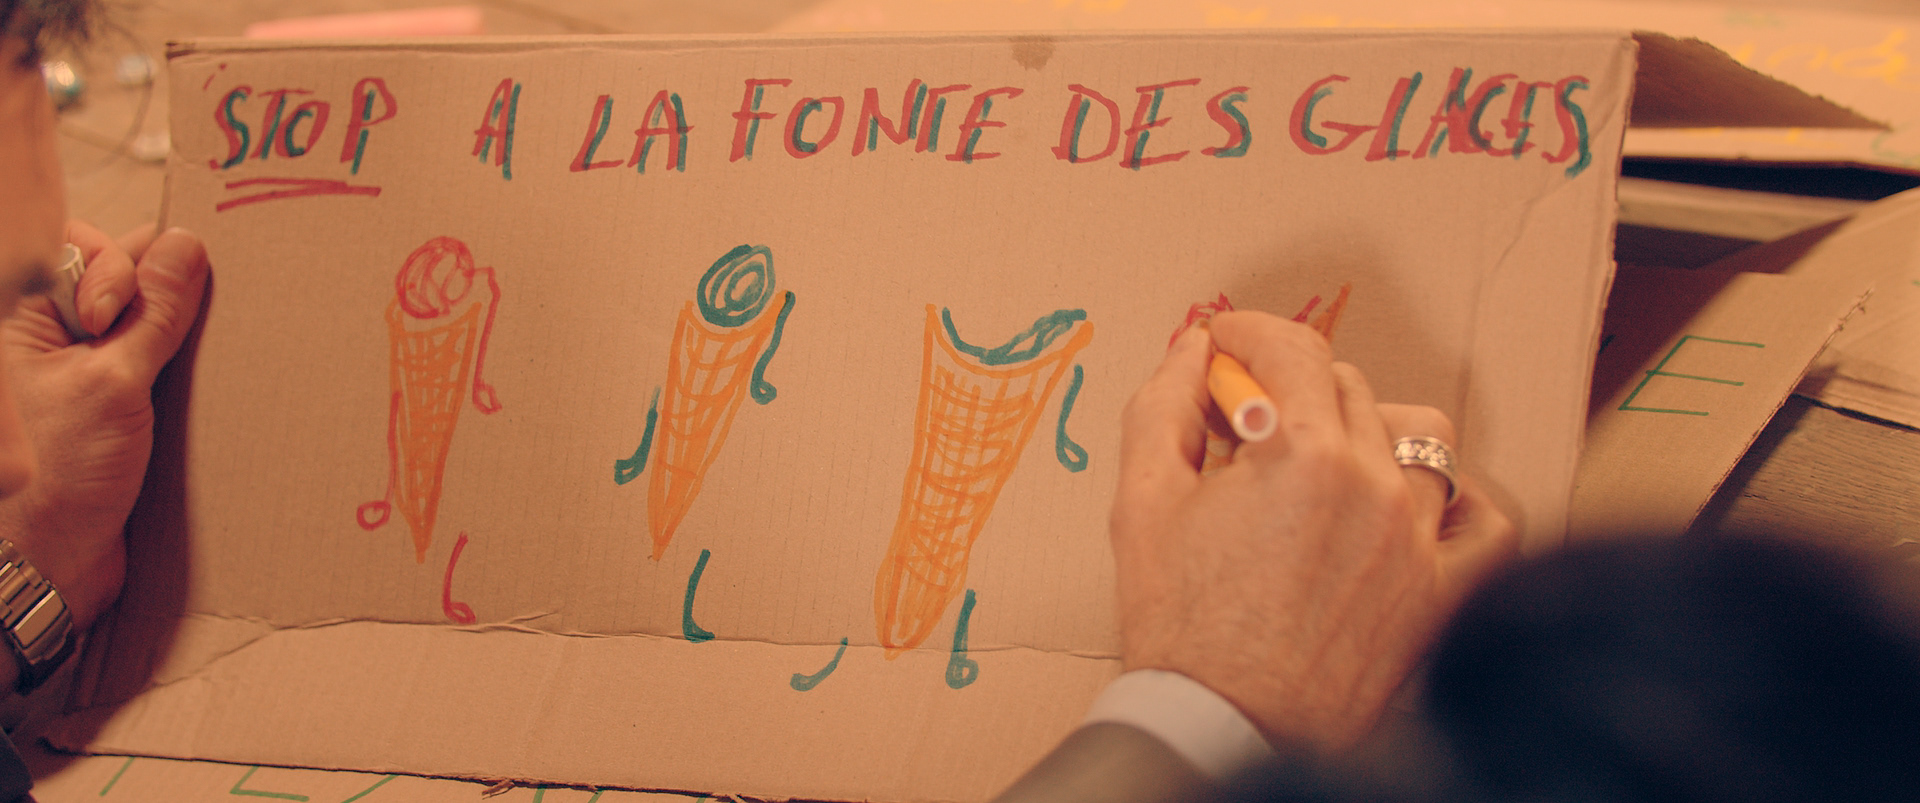 STOP A LA FONTE DES GLACES
E